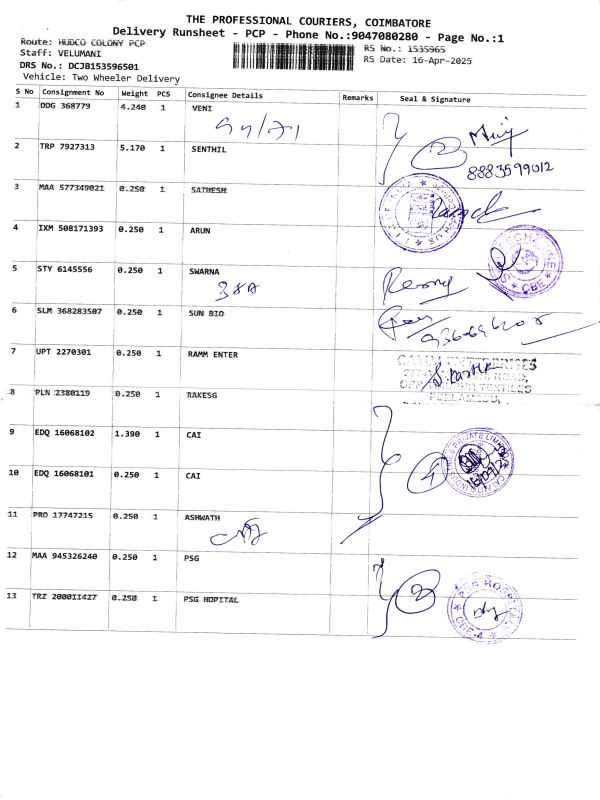 THE PROFESSIONAL COURIERS, COIMBATORE
Delivery Runsheet - PCP - Phone No.:9047080280 - Page No.:1
Route: HUDCO COLONY PCP
RS No.: 1535965
Staff: VELUMANI
RS Date: 16-Apr-2025
DRS No.: DCJB153596501
Vehicle: Two Wheeler Delivery
S No Consignment No Weight PCS Consignee Details Remarks Seal & Signature
1 DDG 368779 4.240 1 VENI
2 TRP 7927313 5.170 1 SENTHIL
2
8883599012
3 MAA 577349021 0.250 1 SATHESH
4 IXM 508171393 0.250 1 ARUN
CBE
5 STY 6145556 0.250 1 SWARNA
38A
6 SLM 368283507 0.250 1 SUN BIO
7 UPT 2270301 0.250 1 RAMM ENTER
ENTERPRISES
8 PLN 2380119 0.250 1 RAKESG
9 EDQ 16068102 1.390 1 CAI
4
10 EDQ 16068101 0.250 1 CAI
11 PRO 17747215 0.250 1 ASHWATH
12 MAA 945326240 0.250 1 PSG
2
13 TRZ 200011427 0.250 1 PSG HOPITAL
PSG HOSPITALS
CBE-4